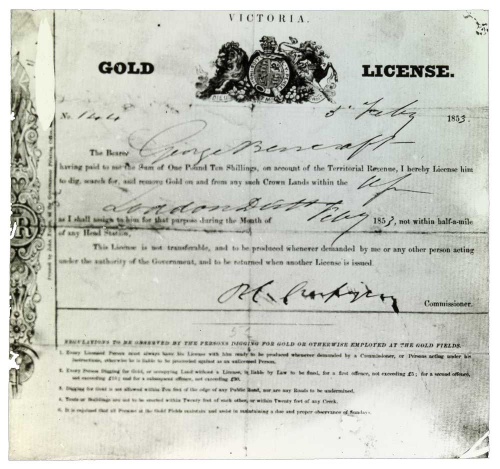 VICTORIA.
GOLD LICENSE.
No. 144 3d Feby 1853
The Bearer George Bencraft
having paid to me the Sum of One Pound Ten Shillings, on account of the Territorial Revenue, I hereby License him
to dig, search for, and remove Gold on and from any such Crown Lands within the
Loddon District
as I shall assign to him for that purpose during the Month of Feby 1853, not within half-a-mile
of any Head Station.
This License is not transferable, and to be produced whenever demanded by me or any other person acting
under the authority of the Government, and to be returned when another License is issued.
Commissioner.
REGULATIONS TO BE OBSERVED BY THE PERSONS DIGGING FOR GOLD OR OTHERWISE EMPLOYED AT THE GOLD FIELDS.
1. Every Licensed Person must always have his License with him ready to be produced whenever demanded by a Commissioner, or Persons acting under his
instructions, otherwise he is liable to be proceeded against as an unlicensed Person.
2. Every Person Digging for Gold, or occupying Land without a License, is liable by Law to be fined, for a first offence, not exceeding £5; for a second offence,
not exceeding £15; and for a subsequent offence, not exceeding £30.
3. Digging for Gold is not allowed within Ten feet of the edge of any Public Road, nor are any Roads to be undermined.
4. Tents or Buildings are not to be erected within Twenty feet of each other, or within Twenty feet of any Creek.
5. It is enjoined that all Persons at the Gold Fields maintain and assist in maintaining a due and proper observance of Sundays.